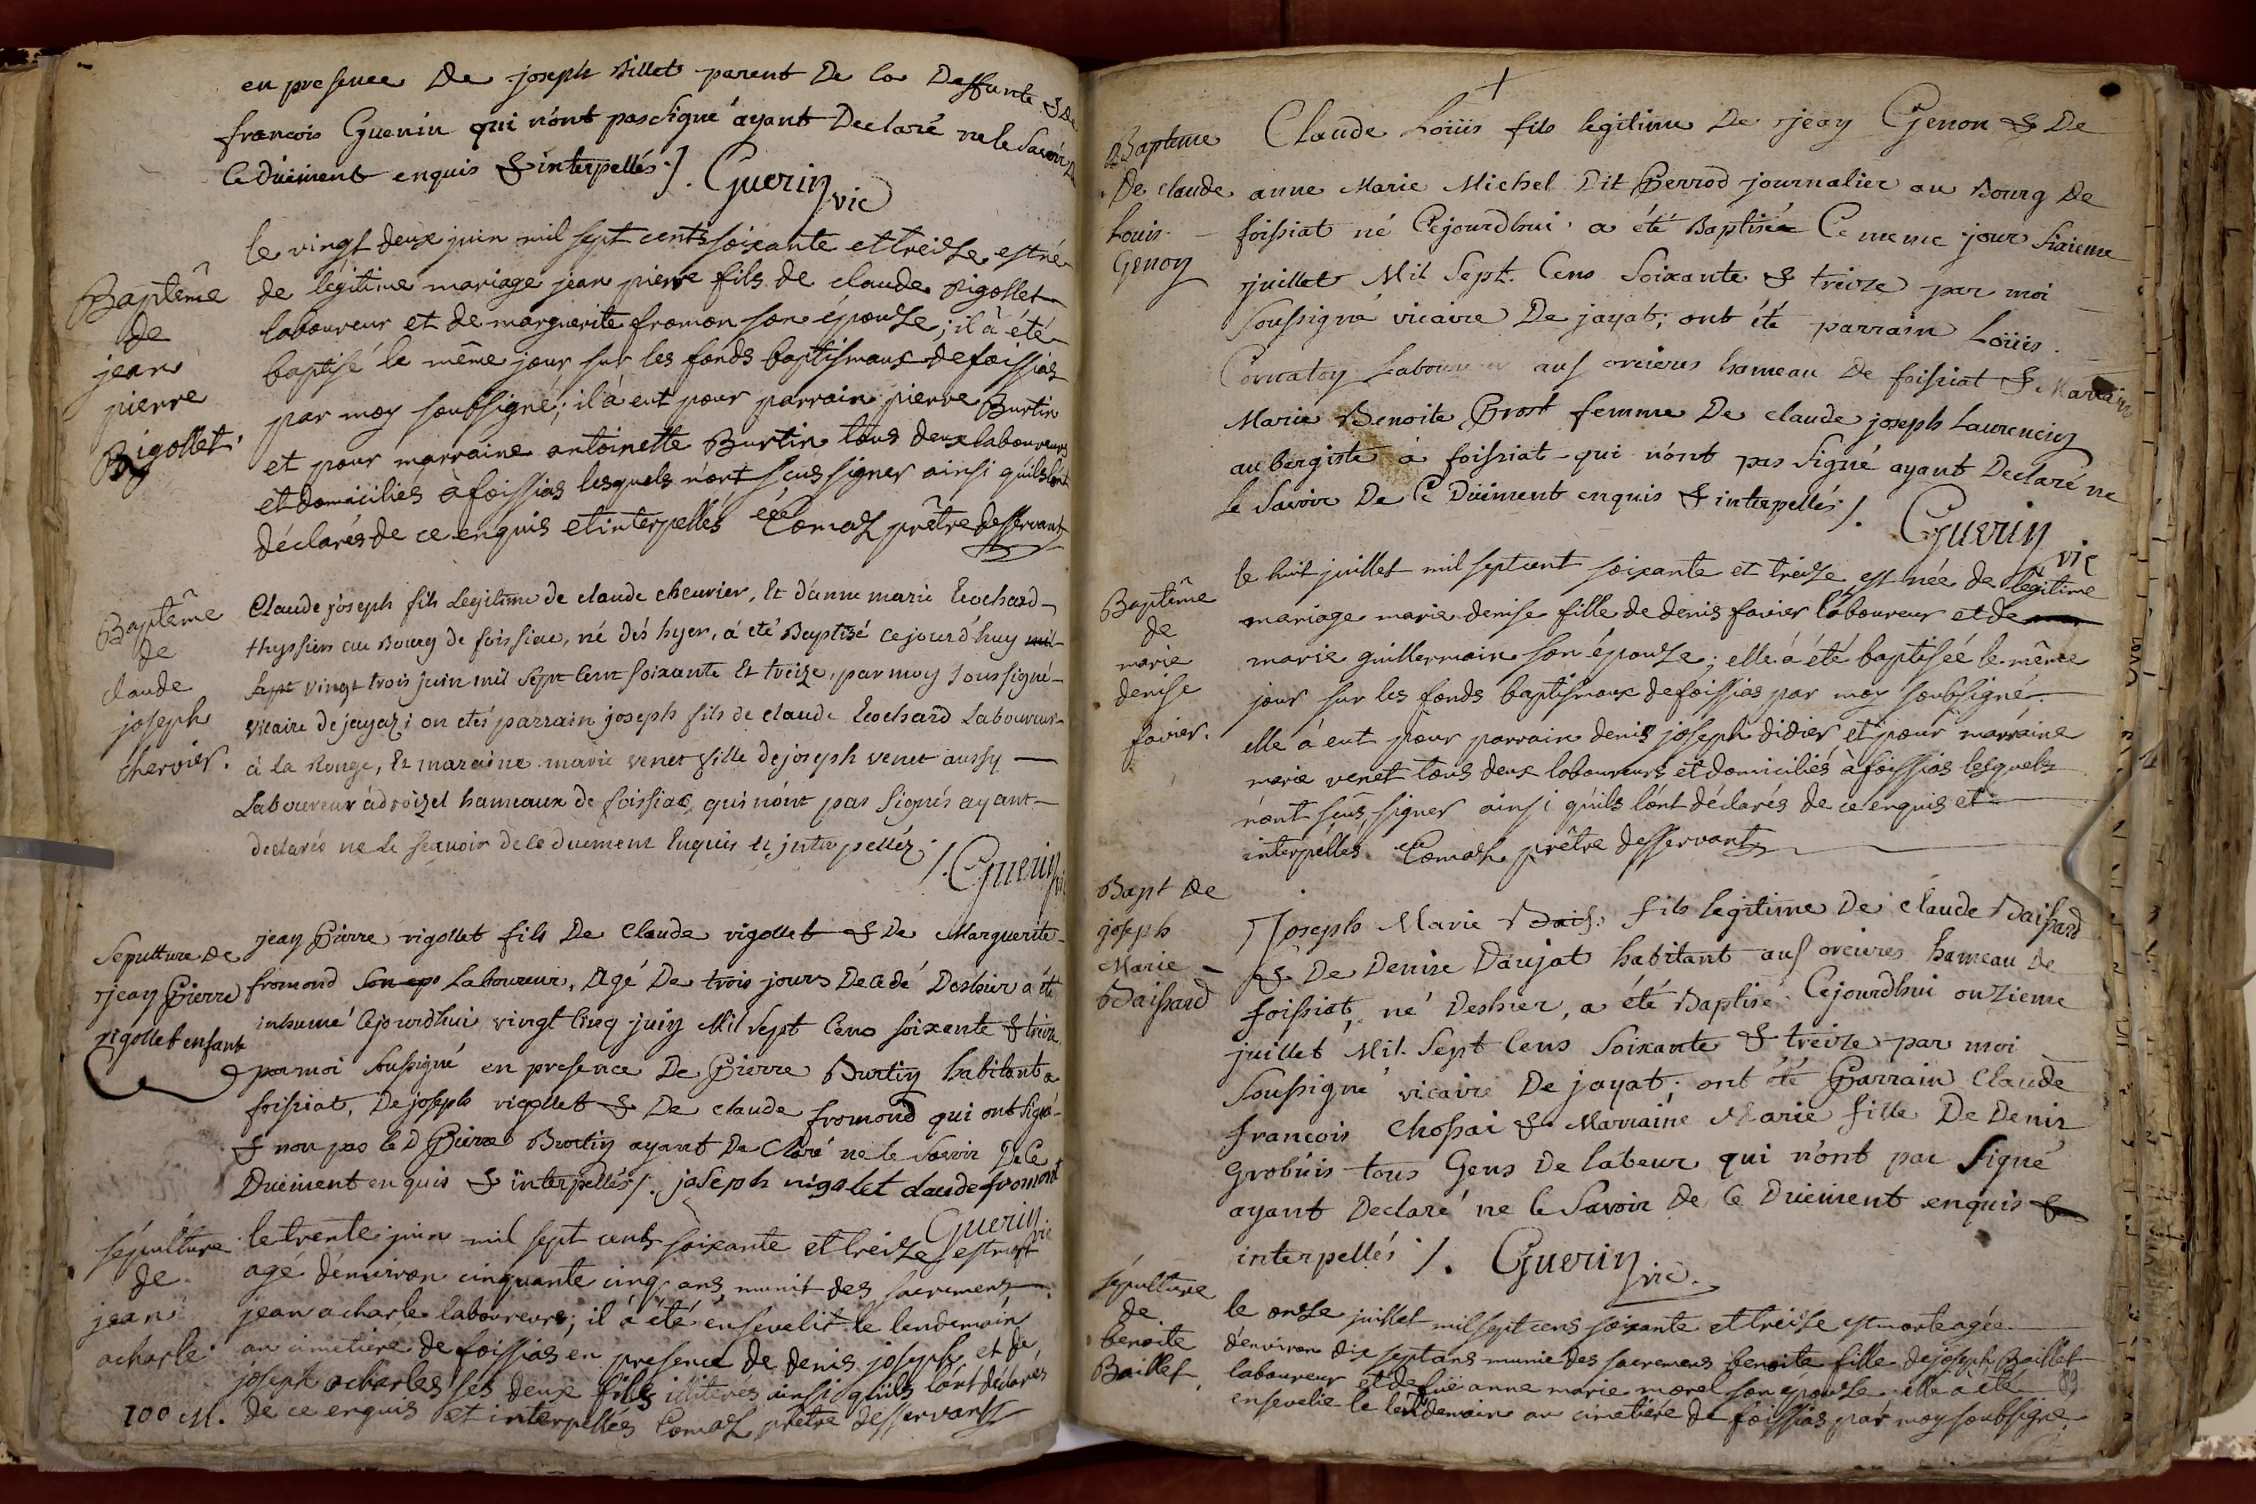 en presence De joseph Billet parent De la Deffunte & De
francois Guerin qui n'ont pas signé ayant Declaré ne le Savoir De
Ce Düement enquis & interpellés /. Guerin vic
Baptême
de
jean
pierre
Rigollet.
le vingt deux juin mil sept cents soixante et treize est né
de légitime mariage jean pierre fils de claude rigollet
laboureur et de marguerite fromon son épouse; il à été
baptisé le même jour sur les fonds baptismaux de foissias
par moy soubsigné; il à eut pour parrain pierre Burtin
et pour marraine antoinette Burtin tous deux laboureurs
et domiciliés à foissias lesquels n'ont scus signer ainsi qu'ils l'ont
déclarés de ce enquis et interpellés Comaz prêtre desservant
Baptême
de
claude
joseph
chervier.
Claude joseph fils Legitime de claude chevrier, Et d'anne marie Cochard
thyssier au Bourg de foissiac, né dés hyer, á eté Baptisé cejourd'huy mil
sept vingt trois juin mil sept cent soixante Et treize, par moy soussigné
vicaire de jayaz; on etés parrain joseph fils de claude Cochard Laboureur
á la Rouge, Et maraine marie venet fille de joseph venet aussy
Laboureur á droizel hameaux de foissiac, qui n'ont pas signés ayant
declarés ne le sçavoir de ce duement Enquis et interpellés /. Guerin vic
Sepulture De
jean Pierre
rigollet enfant
jean Pierre rigollet fils De Claude rigollet & De Marguerite
fromond son eps Laboureur, Agé De trois jours Decedé Deshier a été
inhumé Cejourdhui vingt Cinq juin Mil Sept Cens soixante & treize
par moi soussigné en presence De Pierre Burtin habitant a
foissiat, De joseph rigollet & De claude fromond qui ont signé
& non pas le D Pierre Burtin ayant De Claré ne le Savoir De Ce
Düement enquis & interpellés /. joseph rigolet claude fromont
Guerin vic
sépulture
de
jean
acharle
le trente juin mil sept cents soixante et treize est mort
agé d'environ cinquante cinq ans munit des sacremens
jean acharle laboureur; il à été ensevelit le lendemain
au cimetiere de foissias en presence de denis joseph et de
joseph acharles ses deux fils illiterés ainsi qu'ils l'ont déclarés
100 M. de ce enquis et interpellés Comaz prêtre desservant
Bapteme
De claude
Louis
Genon
Claude Loüis fils legitime De jean Genon & De
anne Marie Michel Dit Perrod journalier au Bourg De
foissiat né Cejourdhui a été Baptisé Ce meme jour Sixieme
juillet Mil Sept Cens Soixante & treize par moi
Soussigné vicaire De jayat; ont été parrain Loüis
Cornaton Laboureur aus orcieres hameau De foissiat & Marraine
Marie Benoite Prost femme De claude joseph Laurencin
aubergiste à foissiat qui n'ont pas Signé ayant Declaré ne
le Savoir De Ce Düement enquis & interpellés /. Guerin vic
Baptême
de
marie
denise
favier.
le huit juillet mil sept cent soixante et treize est née de légitime
mariage marie denise fille de denis favier laboureur et de
marie guillermain son épouse; elle à été baptisée le même
jour sur les fonds baptismaux de foissias par moy soubsigné
elle à eut pour parrain denis joseph didier et pour marraine
marie venet tous deux laboureurs et domiciliés à foissias lesquels
n'ont scus signer ainsi qu'ils l'ont déclarés de ce enquis et
interpéllés. Comaz prêtre desservant
Bapt De
joseph
Marie
Baissard
Joseph Marie Bais. fils legitime De claude Baissard
& De Denise Daujat habitant aus orcieres hameau De
foissiat, né Deshier, a été Baptisé Cejourdhui onzieme
juillet Mil Sept Cens Soixante & treize par moi
Soussigné vicaire De jayat. ont été Parrain Claude
francois Chossai & Marraine Marie fille De Denis
Grobüis tous Gens De labeur qui n'ont pas Signé
ayant Declaré ne le Savoir De Ce Düement enquis &
interpellés /. Guerin vic.
sépulture
de
benoite
Baillet
le onze juillet mil sept cens soixante et treize est morte agée
d'environ dix sept ans munie des sacremens benoite fille de joseph Baillet
laboureur et de füe anne marie morel son épouse elle à été
ensevelie le lendemain au cimetiere de foissias par moy soubsigné